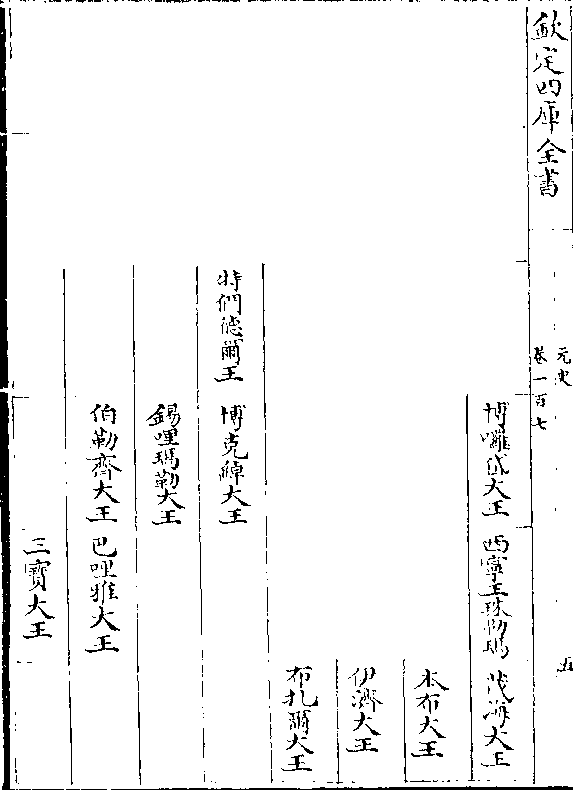 欽定四庫全書
元史
卷一百七
五
博囉岱大王 西寧王珠勒瑪 茂海大王
木布大王
伊濟大王
布扎爾大王
特們德爾王 博克綽大王
錫哩瑪勒大王
伯勒齊大王 巴哩雅大王
三寶大王